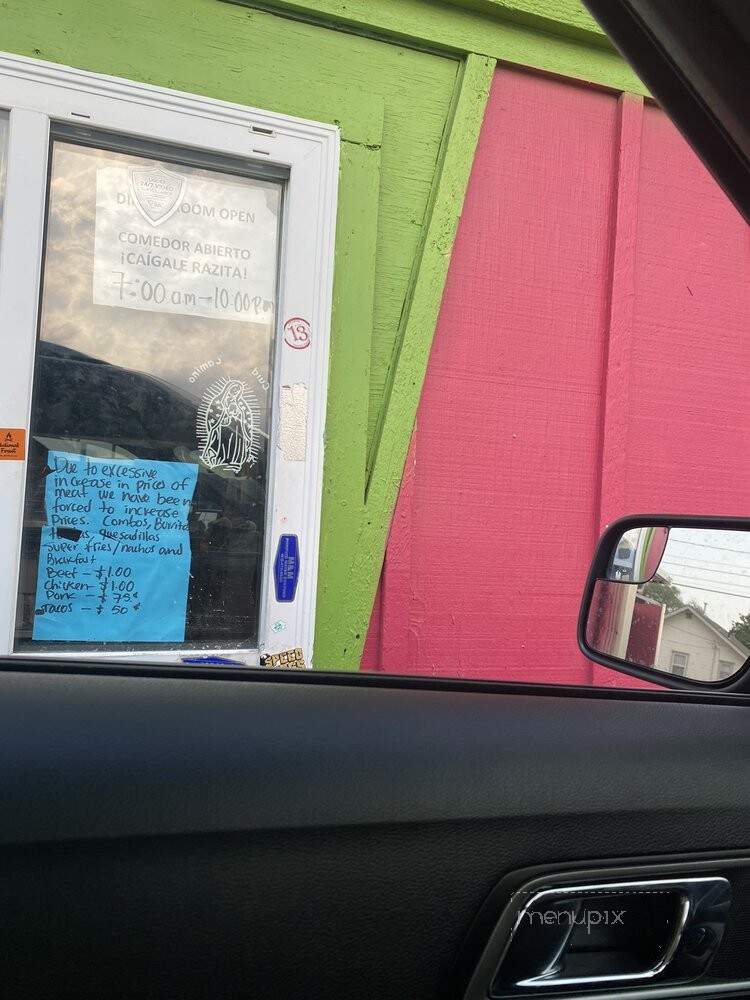 OOM OPEN
COMEDOR ABIERTO
¡CAÍGALE RAZITA!
7:00 am - 10:00 pm
13
Camino
Due to excessive
increase in prices of
meat we have been
forced to increase
Prices. Combos, Burrito
quesadillas
super fries/nachos and
Breakfast
Beef - $1.00
Chicken - $1.00
Pork - $ 75¢
Tacos - $ 50¢
M&M
SPEED
menupix